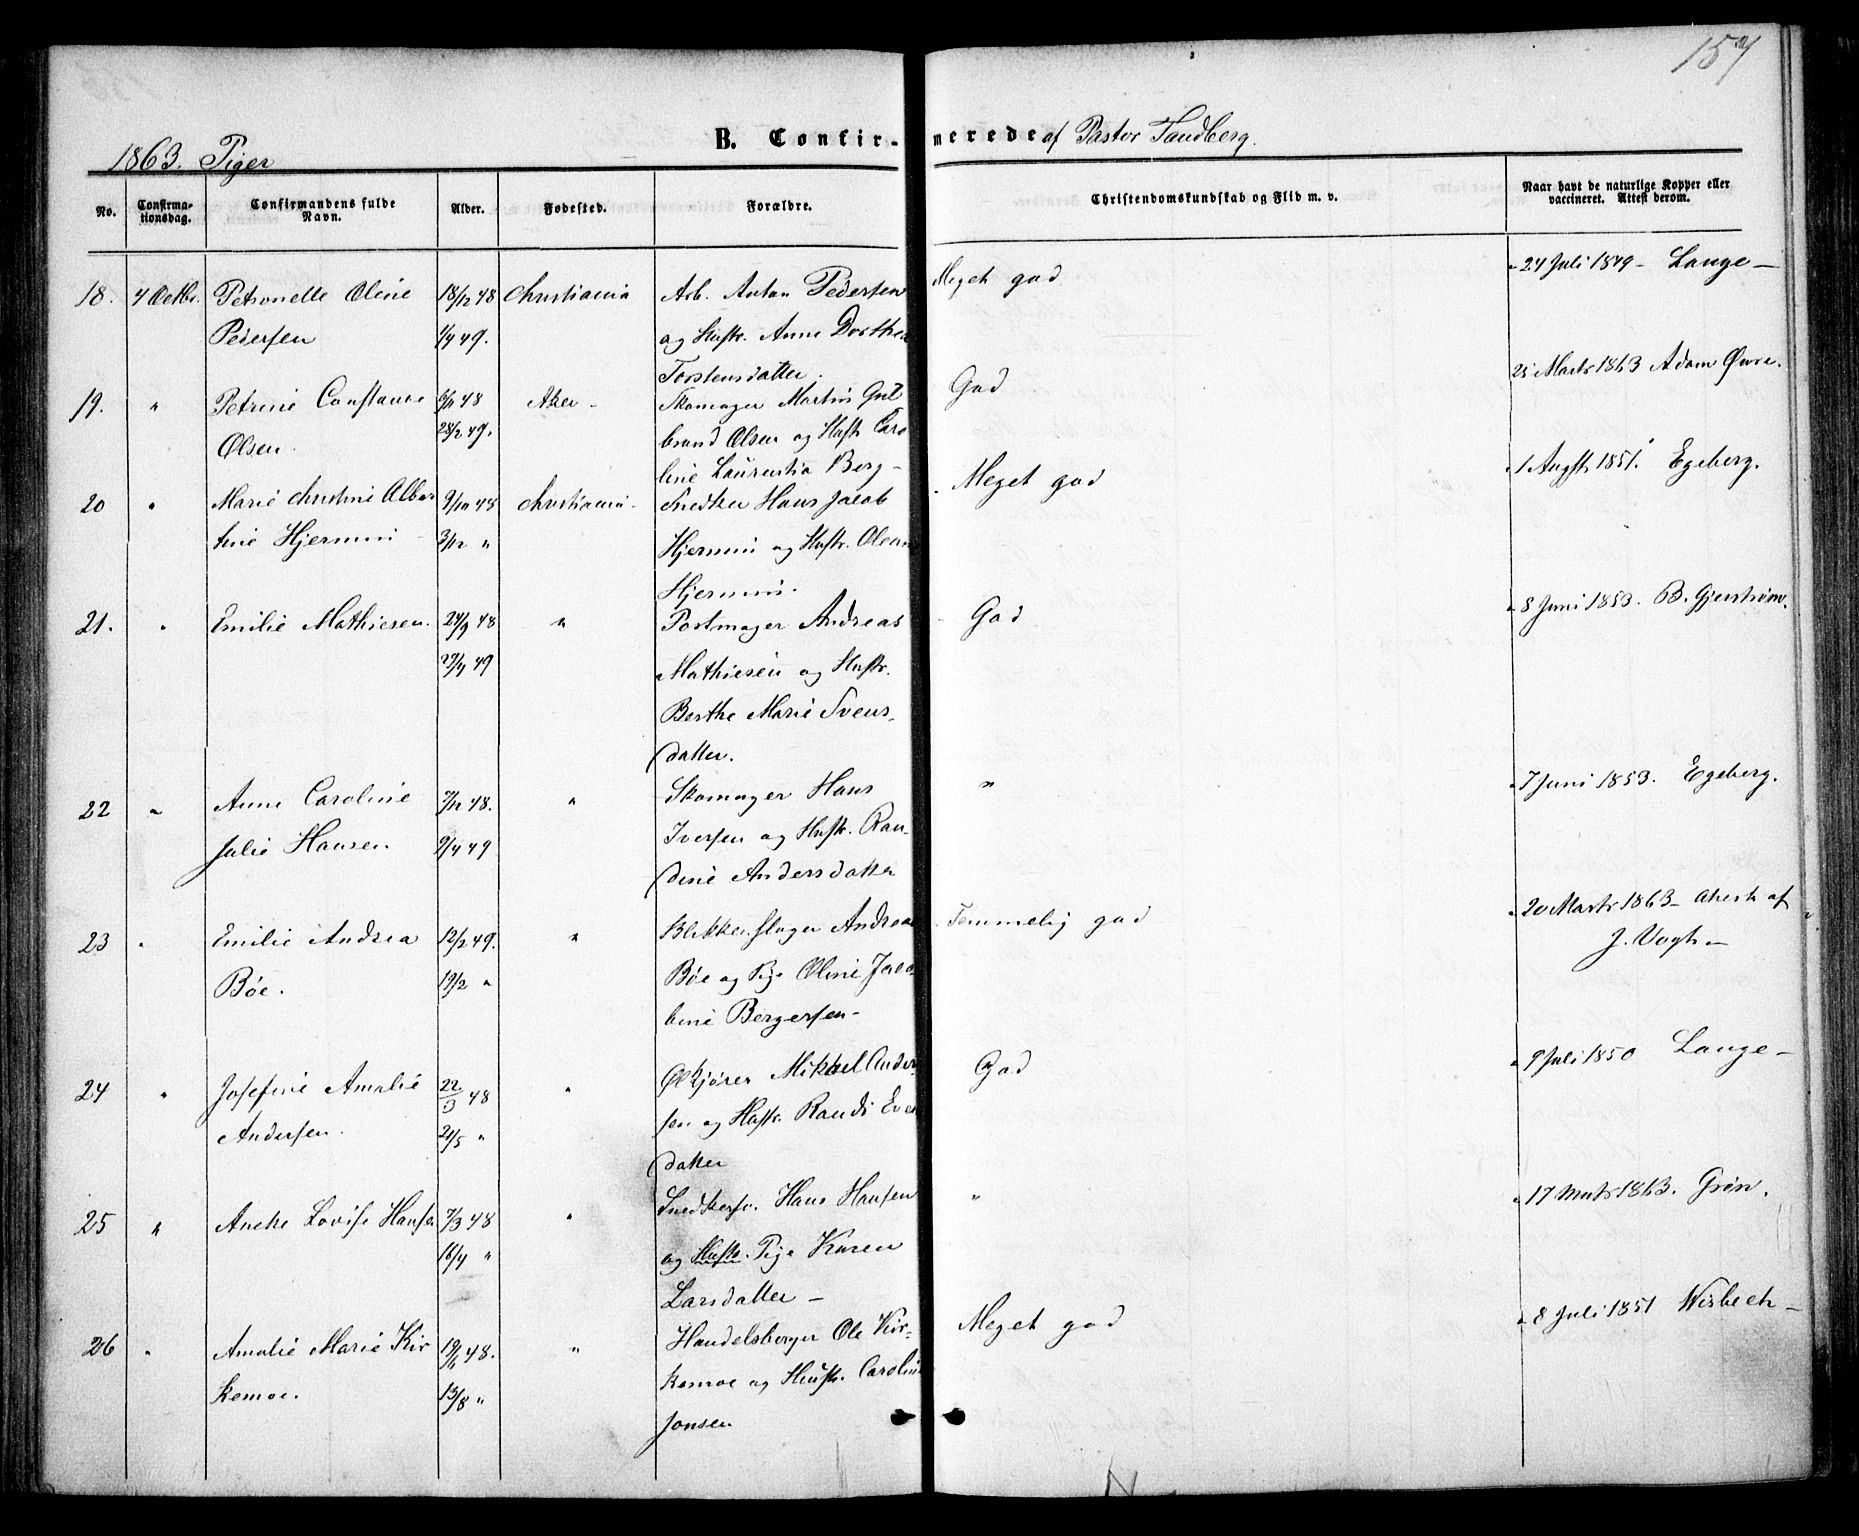 157
1863. Piger
B. Confir- merede af Pastor Tandberg.
No. Confirma- Confirmandens fulde Alder. Fødested. Forældre. Christendomskundskab og Flid m. v. Naar havt de naturlige Kopper eller
tionsdag. Navn. vaccineret. Attest derom.
18. 4 Octbr. Petronelle Oline 18/12 48 Christiania Arb. Anton Pedersen Meget god 24 Juli 1849 - Lange -
Pedersen 1/4 49. og Hustr. Anne Dorthea
Torstensdatter.
19. " Petrine Constance 6/11 48 Aker - Skomager Martin Gul God 25 Marts 1863 Adam Øwre.
Olsen. 28/2 49. brand Olsen og Hustr. Caro
line Laurentia Berg -
20 " Marie Christine Alber 9/10 48 Christiania - Snedker Hans Jacob Meget god 1 Augst 1851. Egeberg.
tine Hjermin 3/12 " Hjermin og Hustr. Oleane
Hjermin.
21. " Emilie Mathiesen. 24/9 48 " Portmager Andreas God 8 Juni 1853. B. Gjerstrøm.
29/4 49 Mathiesen og Hustr.
Berthe Marie Svens-
datter.
22 " Anne Caroline 7/12 48. " Skomager Hans " 7 Juni 1853. Egeberg.
Julie Hansen. 9/4 49 Iversen og Hustr. Ran-
dine Andersdatter
23 " Emilie Andrea 12/2 49. " Blikkenslager Andreas Temmelig god 20 Marts 1863 - Attest af
Bøe. 19/2 " Bøe og Pige Oline Jaco J. Vogt -
bine Bergersen -
24 " Josefine Amalie 22/3 48 " Ølkjører Mikael Ander God 9 Juli 1850 Lange -
Andersen. 21/5 " sen og Hustr. Randi Evens
datter
25 " Anette Lovise Hansen 7/3 48 " Snedkersv. Hans Hansen " 17 Marts 1863. Grøn.
16/4 " og Hustr. Pige Karen
Larsdatter -
26 " Amalie Marie Kir 19/6 48. " Handelsborger Ole Kir- Meget god 8 Juli 1851 Wisbech -
kemoe. 13/8 " kemoe og Hustr. Caroline
Jonsen